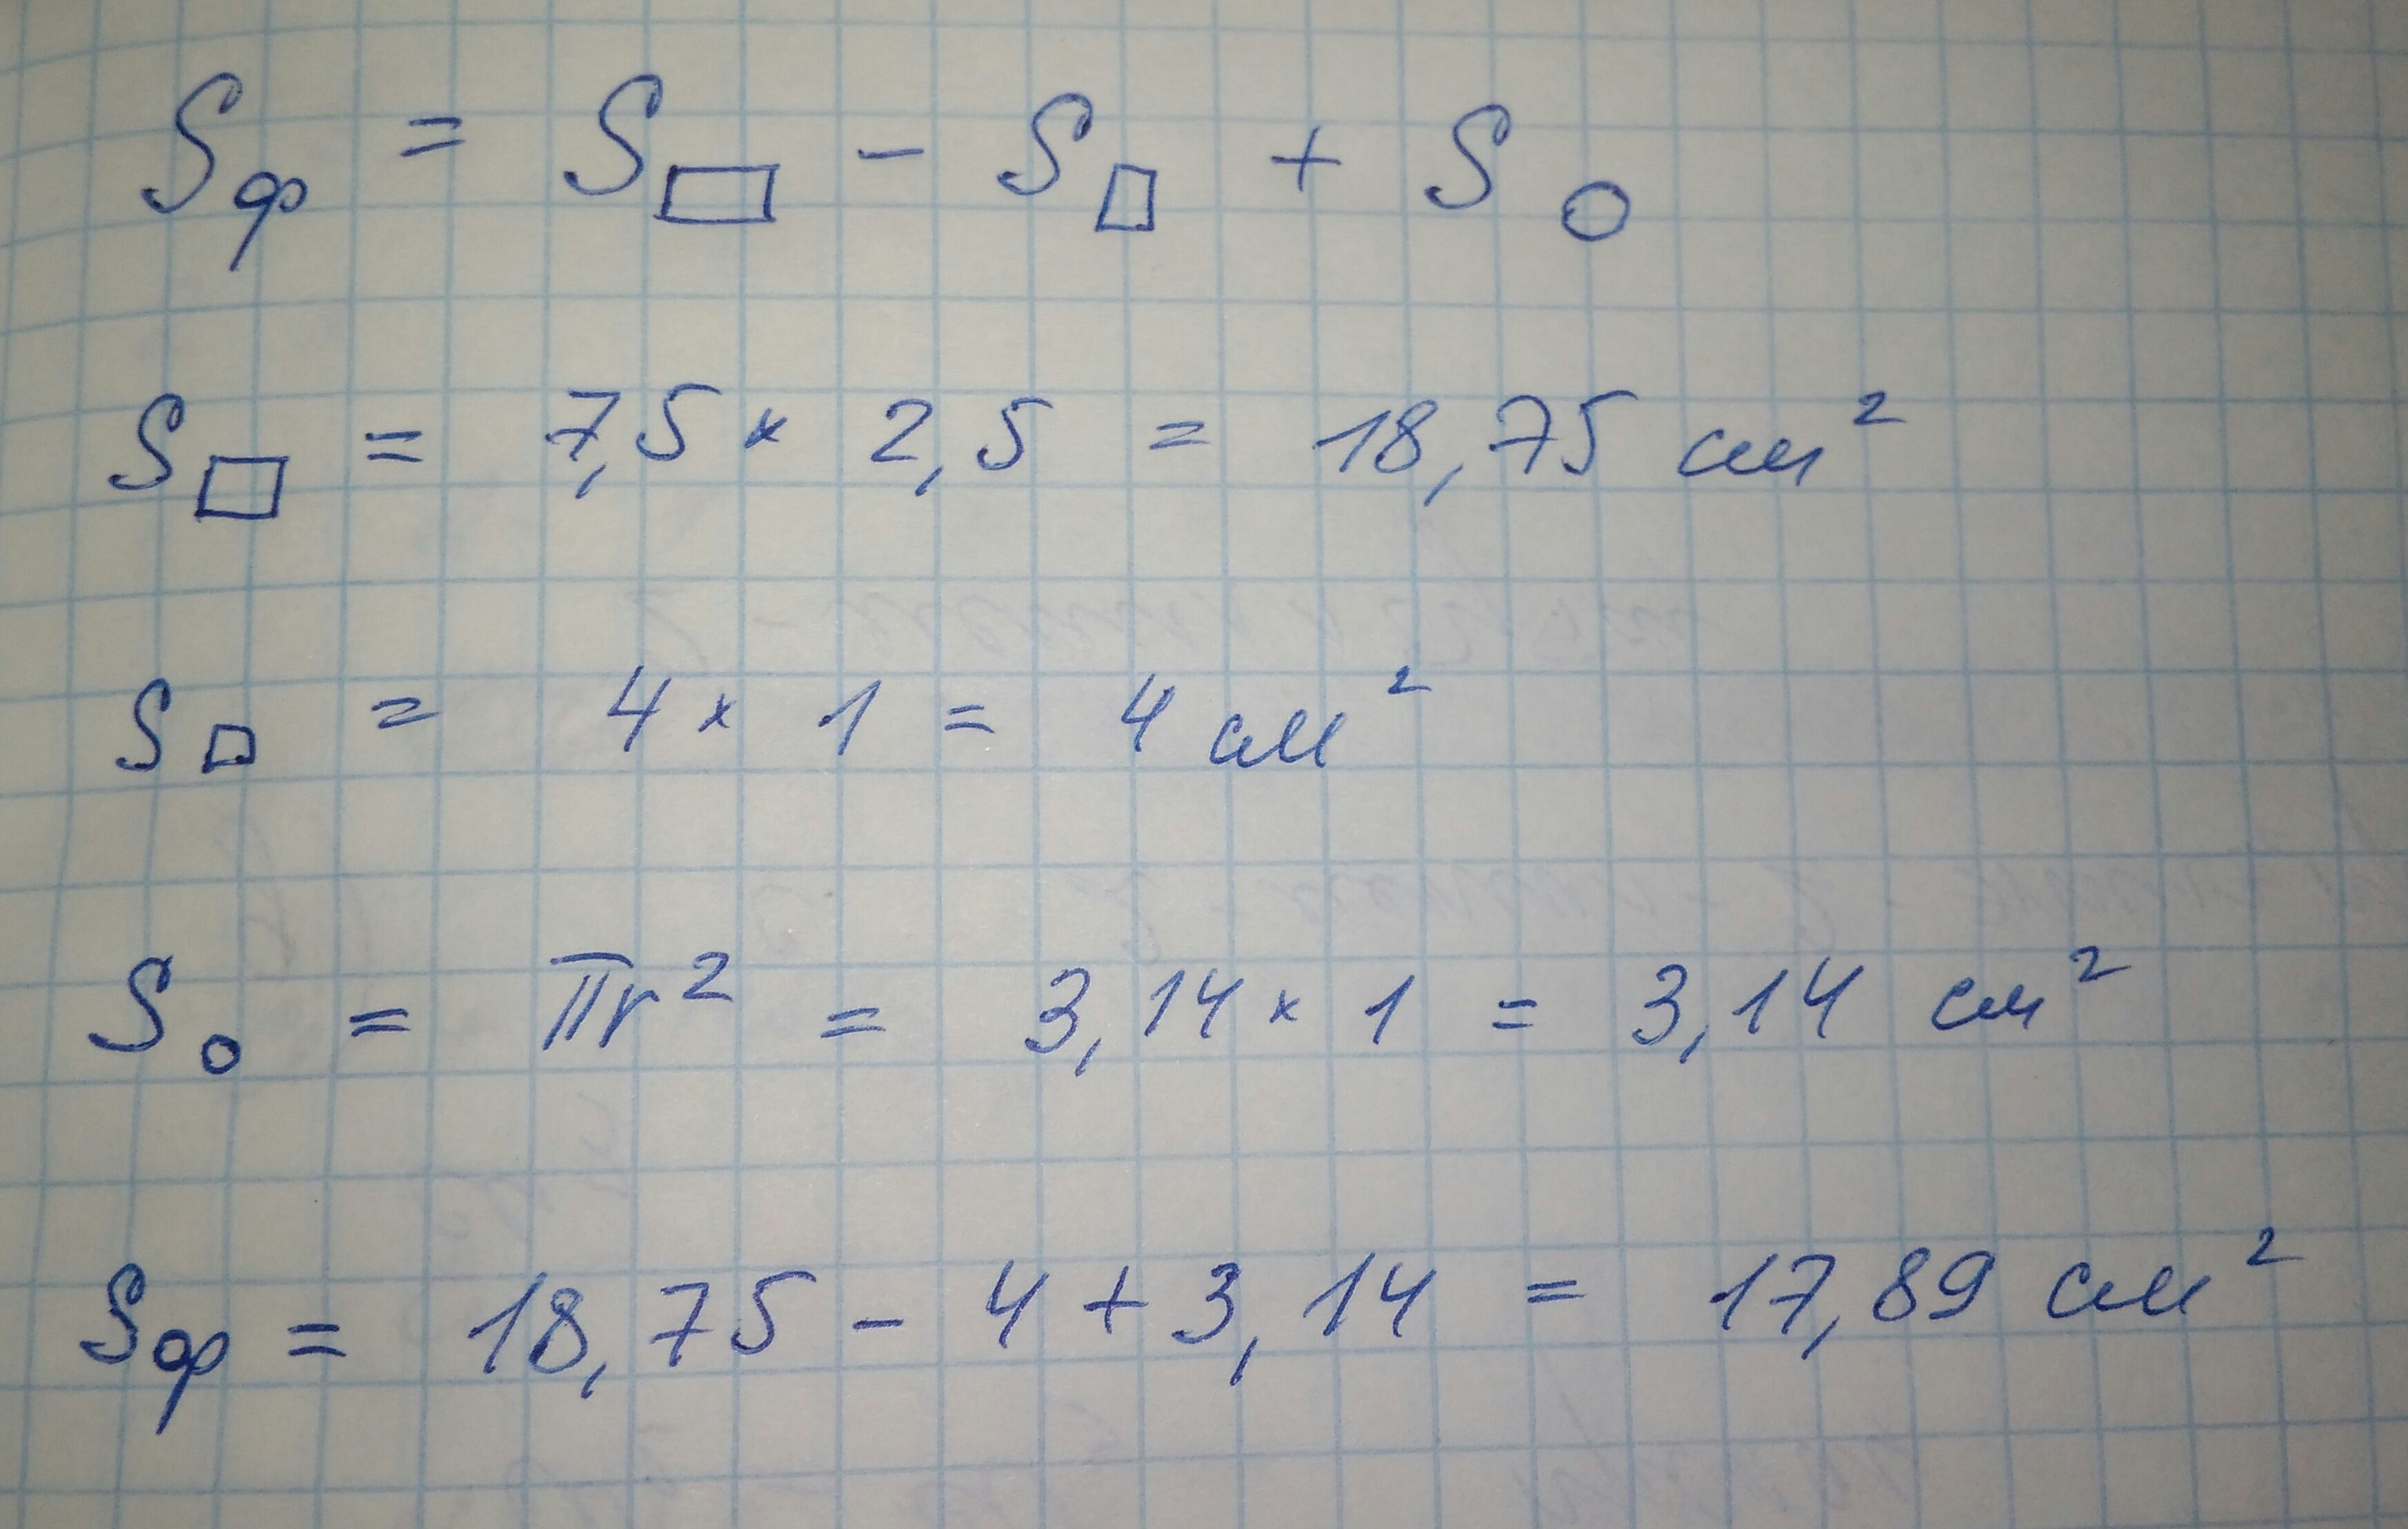 Sф = S▭ - S□ + S○
S▭ = 7,5 × 2,5 = 18,75 см²
S□ = 4 × 1 = 4 см²
S○ = πr² = 3,14 × 1 = 3,14 см²
Sф = 18,75 - 4 + 3,14 = 17,89 см²